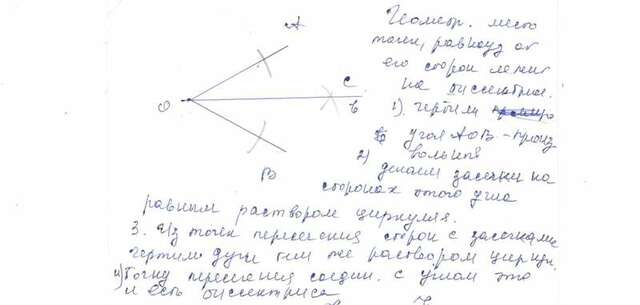 А
О
С
в
В
Геометр. место
точек, равноуд от
его сторон лежит
на биссектрисе.
1). Чертим
угол АОВ – произ
вольный
2) делаем засечки на
сторонах этого угла
равным раствором циркуля.
3. Из точек пересечения сторон с засечками
чертим дуги тем же раствором циркуля.
4) Точку пересечения соедин. с углом это
и есть биссектриса